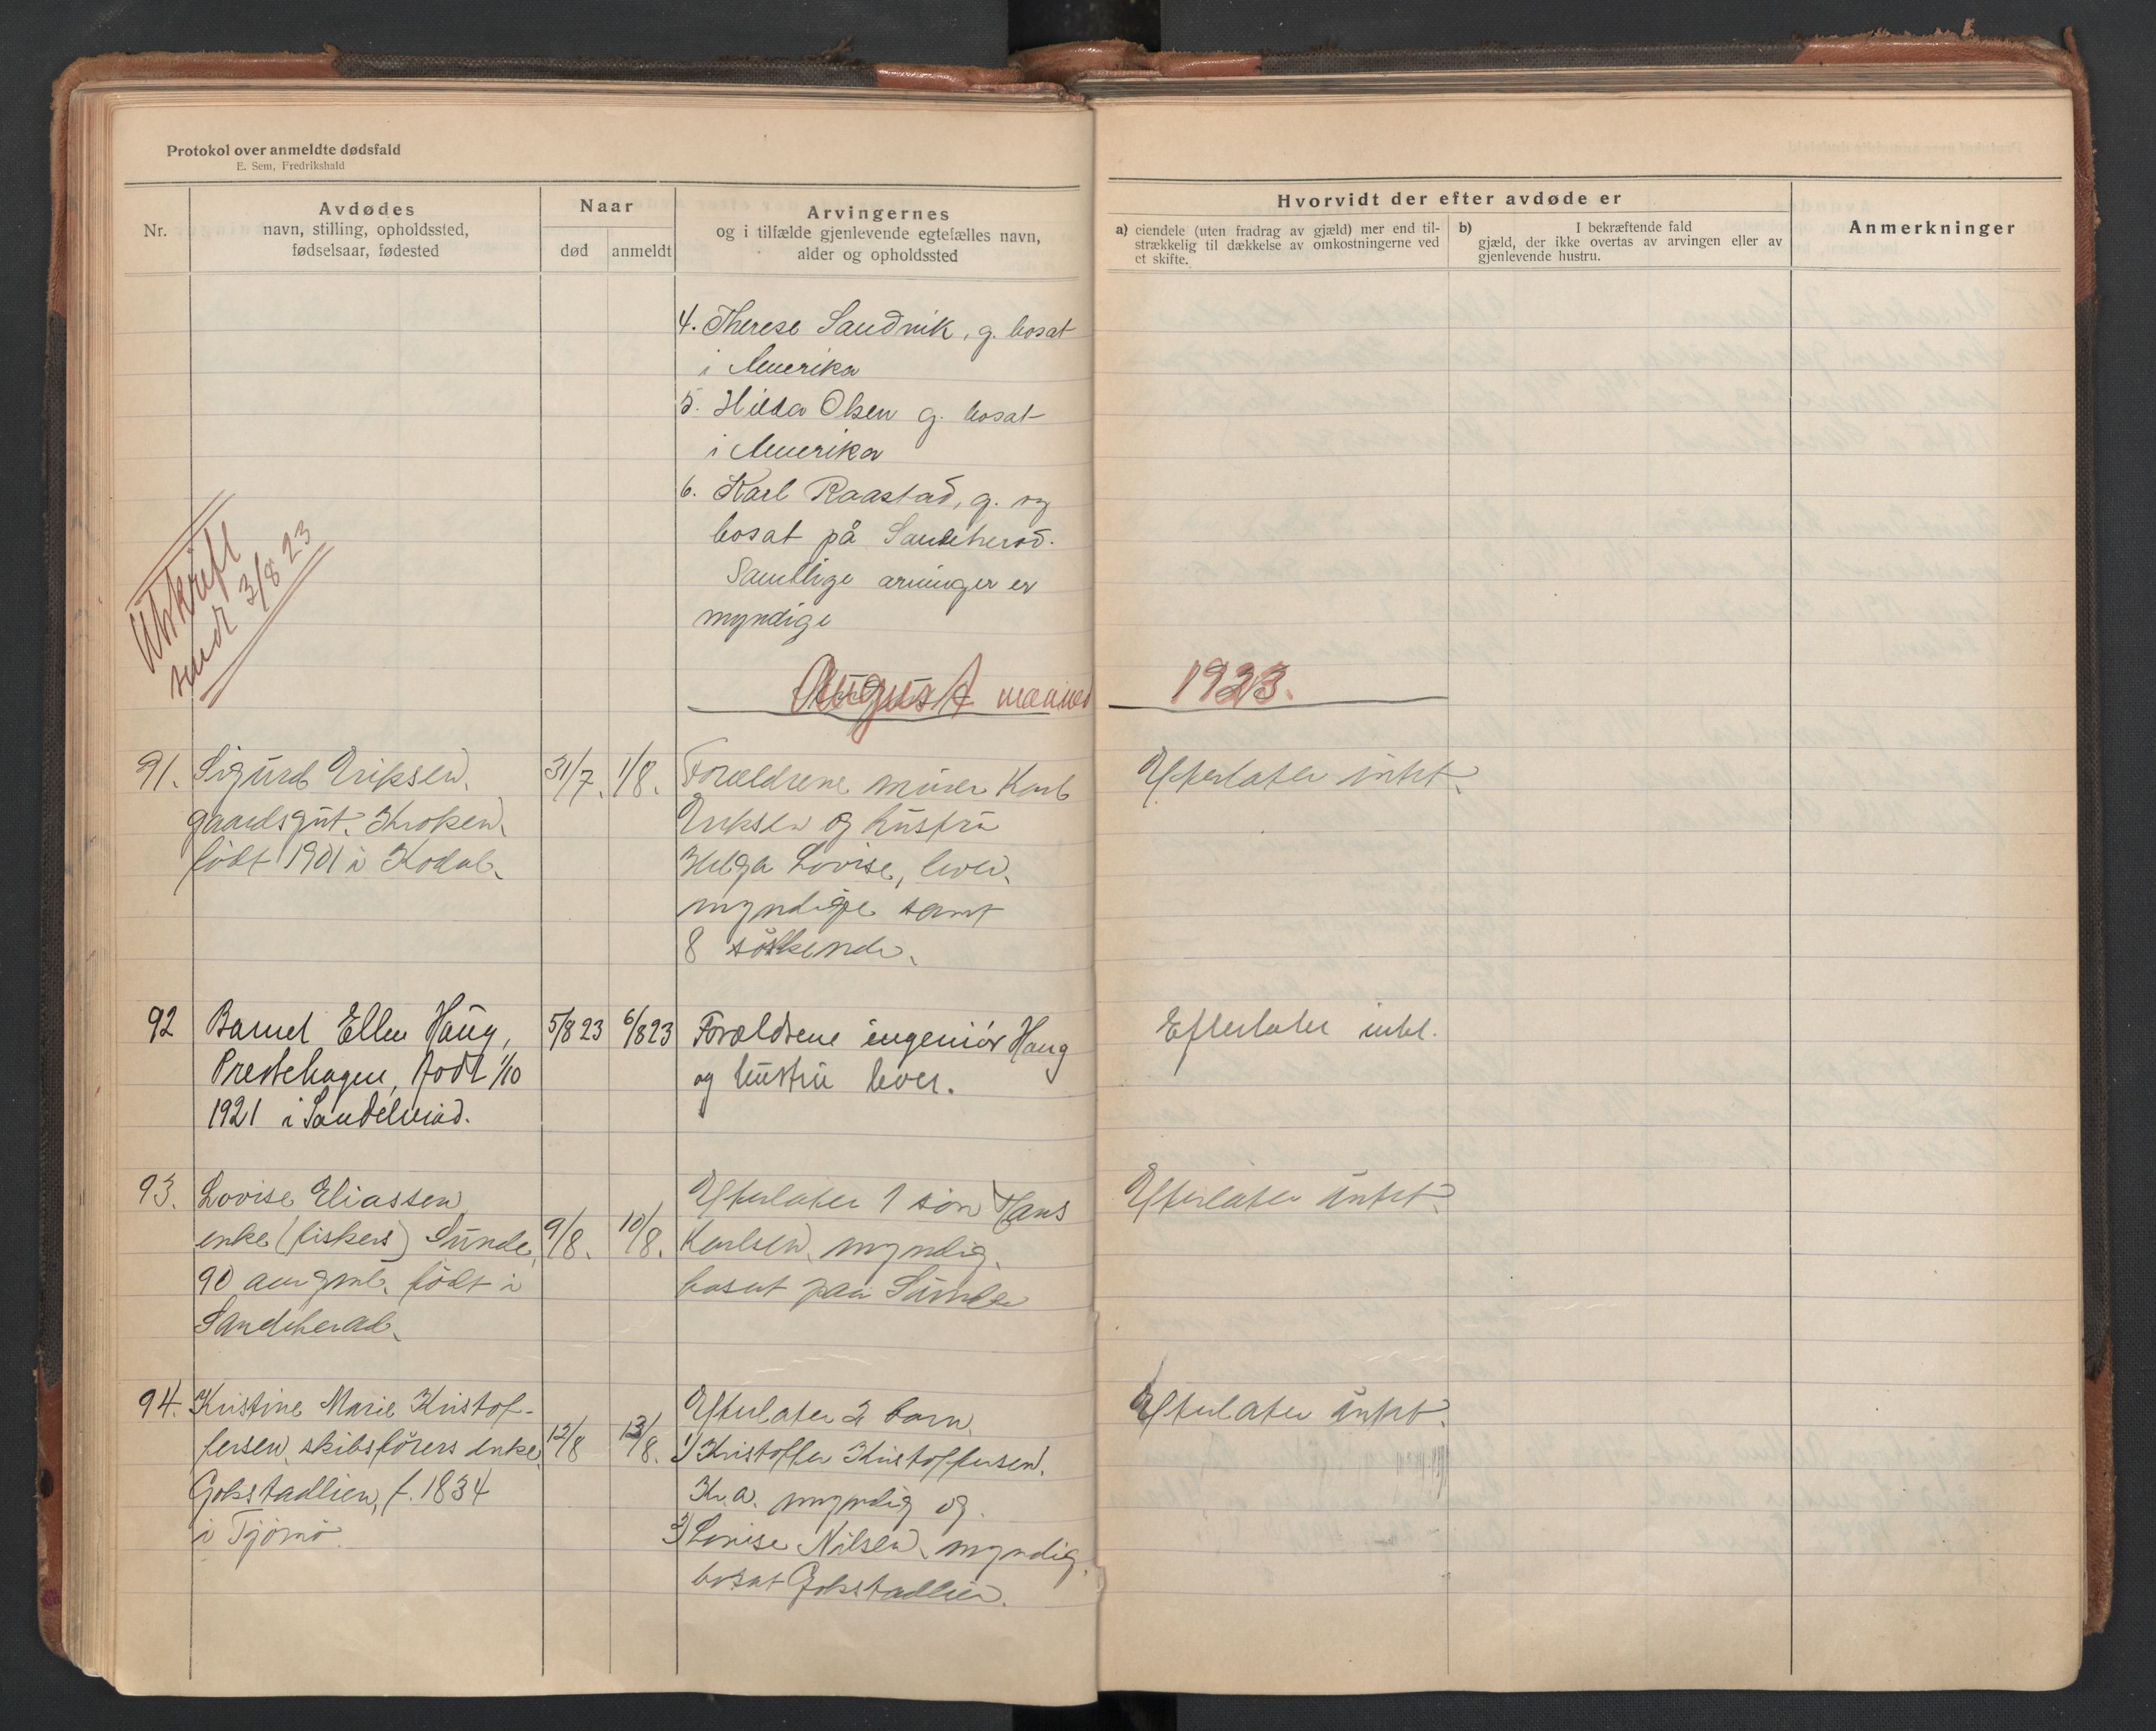 Protokol over anmeldte dødsfald
E. Sem, Fredrikshald
Nr.
Avdødes
navn, stilling, opholdssted,
fødselsaar, fødested
Naar
død
anmeldt
Arvingernes
og i tilfælde gjenlevende egtefælles navn,
alder og opholdssted
Hvorvidt der efter avdøde er
a) eiendele (uten fradrag av gjæld) mer end til-
strækkelig til dækkelse av omkostningerne ved
et skifte.
b) I bekræftende fald
gjæld, der ikke overtas av arvingen eller av
gjenlevende hustru.
Anmerkninger
4. Therese Sandvik, g. bosat
i Amerika
5. Hilda Olsen g. bosat
i Amerika
6. Karl Raastad, g. og
bosat på Sandeherød.
Samtlige arvinger er
myndige
Utskrift
sendt 3/8 23
August maaned 1923.
91. Sigurd Eriksen,
gaardsgut. Kroken,
født 1901 i Kodal.
31/7. 1/8.
Forældrene murer Karl
Eriksen og hustru
Helga Lovise, lever,
myndige samt
8 søskende.
Efterlater intet.
92 Barnet Ellen Haug,
Prestehagen, født 1/10
1921 i Sandeherad.
5/8 23 6/8 23
Forældrene ingeniør Haug
og hustru lever.
Efterlater intet.
93. Lovise Eliassen
enke (fiskers) Sunde,
90 aar gml. født i
Sandeherad.
9/8. 10/8.
Efterlater 1 søn Hans
Karlsen, myndig,
bosat paa Sunde
Efterlater intet.
94. Kristine Marie Kristof-
fersen, skibsførers enke,
Gokstadlien, f. 1834
i Tjømø.
12/8 13/8.
Efterlater 2 barn,
1) Kristoffer Kristoffersen,
Kr.a. myndig og
2) Lovise Nilsen, myndig,
bosat Gokstadlien.
Efterlater intet.